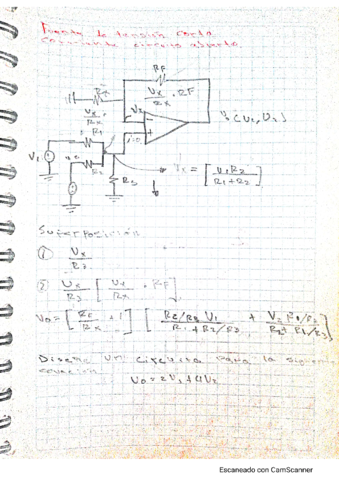 Fuente de tensión corto
Corriente circuito abierto.
RF
Rx
Vx/Rx · RF
Vx/Rx
R1
V1
R2
R3
Vx = [V1R2/R1+R2]
Superposición
① Vx/R3
② Vx/R3 [Vx/Rx · RF]
Vo = [RF/Rx + 1] [R2/R3 V1/R1+R2/R3 + V2 R1/R3/R2+R1/R3]
Diseñe un circuito para la siguiente
ecuación
Vo = 2V1 + 4V2
Escaneado con CamScanner